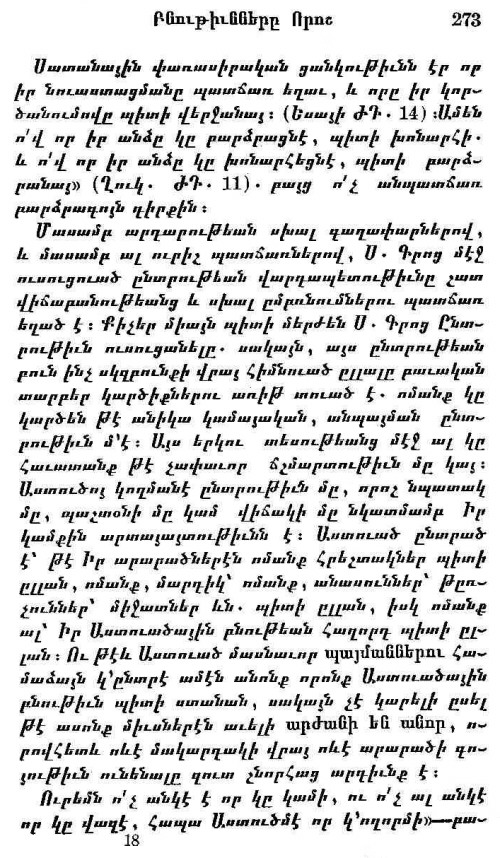 Բնութիւնները Որոշ 273
Սատանային փառասիրական ցանկութիւնն էր որ
իր նուաստացմանը պատճառ եղաւ, և որը իր կոր-
ծանումովը պիտի վերջանայ։ (Եսայի ԺԴ. 14)։Ամեն
ո՛վ որ իր անձը կը բարձրացնէ, պիտի խոնարհի.
և ո՛վ որ իր անձը կը խոնարհեցնէ, պիտի բարձ-
րանայ» (Ղուկ. ԺԴ. 11). բայց ո՛չ անպատճառ
բարձրագոյն դիրքին։
Մասամբ արդարութեան սխալ գաղափարներով,
և մասամբ ալ ուրիշ պատճառներով, Ս. Գրոց մէջ
ուսուցուած ընտրութեան վարդապետութիւնը շատ
վիճաբանութեանց և սխալ ըմբռնումներու պատճառ
եղած է։ Քիչեր միայն պիտի մերժեն Ս. Գրոց Ընտ-
րութիւն ուսուցանելը. սակայն, այս ընտրութեան
բուն ինչ սկզբունքի վրայ հիմնուած ըլլալը բաւական
տարբեր կարծիքներու առիթ տուած է. ոմանք կը
կարծեն թէ անիկա կամայական, անպայման ընտ-
րութիւն մ՚է։ Այս երկու տեսութեանց մէջ ալ կը
հաւատանք թէ չափաւոր ճշմարտութիւն մը կայ։
Աստուծոյ կողմանէ ընտրութիւն մը, որոշ նպատակ
մը, պաշտօնի մը կամ վիճակի մը նկատմամբ Իր
կամքին արտայայտութիւնն է։ Աստուած ընտրած
է՝ թէ Իր արարածներէն ոմանք Հրեշտակներ պիտի
ըլլան, ոմանք, մարդիկ՝ ոմանք, անասուններ՝ թըռ-
չուններ՝ միջատներ ևն. պիտի ըլլան, իսկ ոմանք
ալ՝ Իր Աստուածային բնութեան հաղորդ պիտի ըլ-
լան։ Ու թէև Աստուած մասնաւոր պայմաններու հա-
մաձայն կ՚ընտրէ ամէն անոնք որոնք Աստուածային
բնութիւն պիտի ստանան, սակայն չէ կարելի ըսել
թէ ասոնք միւսներէն աւելի արժանի են անոր, ո-
րովհետև ոևէ մակարդակի վրայ ոևէ արարածի գո-
յութիւն ունենալը զուտ շնորհաց արդիւնք է։
Ուրեմն ո՛չ անկէ է որ կը կամի, ու ո՛չ ալ անկէ
որ կը վազէ, հապա Աստուծմէ որ կ՚ողորմի»—բա-
18